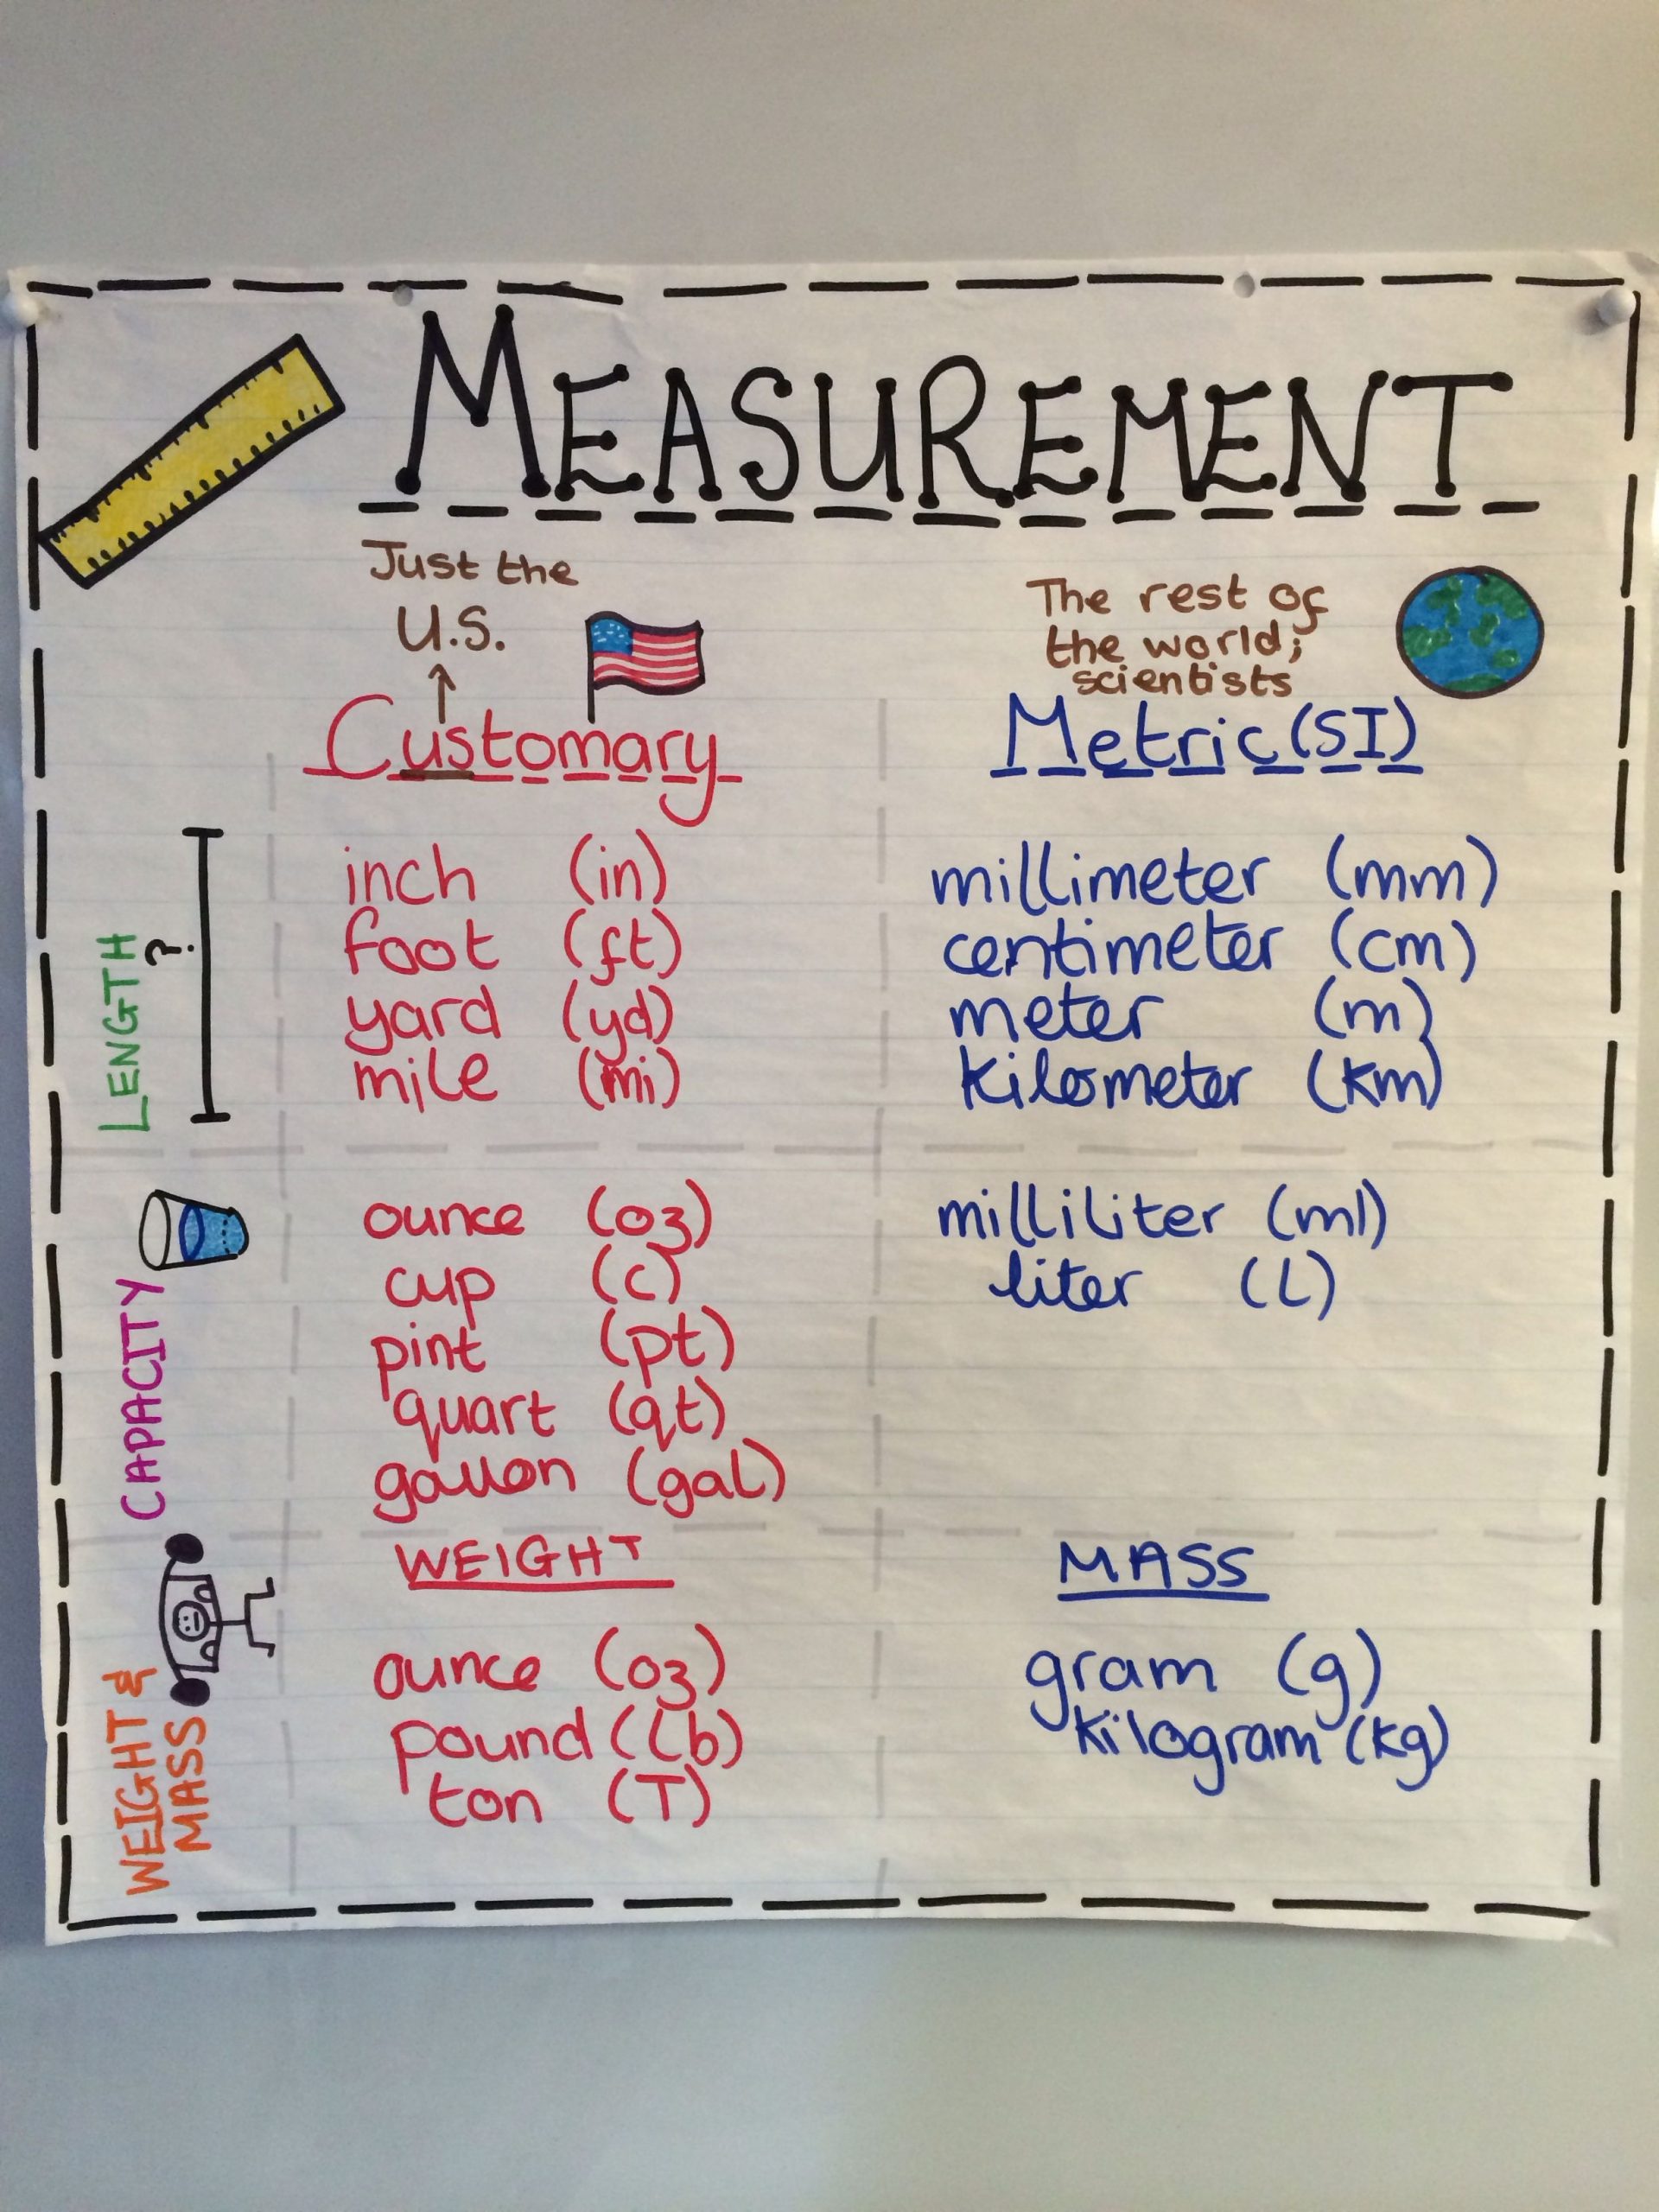 MEASUREMENT
Just the
U.S.
The rest of
the world;
scientists
Customary
Metric (SI)
LENGTH
?
inch (in)
foot (ft)
yard (yd)
mile (mi)
millimeter (mm)
centimeter (cm)
meter (m)
kilometer (km)
CAPACITY
ounce (oz)
cup (c)
pint (pt)
quart (qt)
gallon (gal)
milliliter (ml)
liter (L)
WEIGHT &
MASS
WEIGHT
ounce (oz)
pound (Lb)
ton (T)
MASS
gram (g)
kilogram (kg)